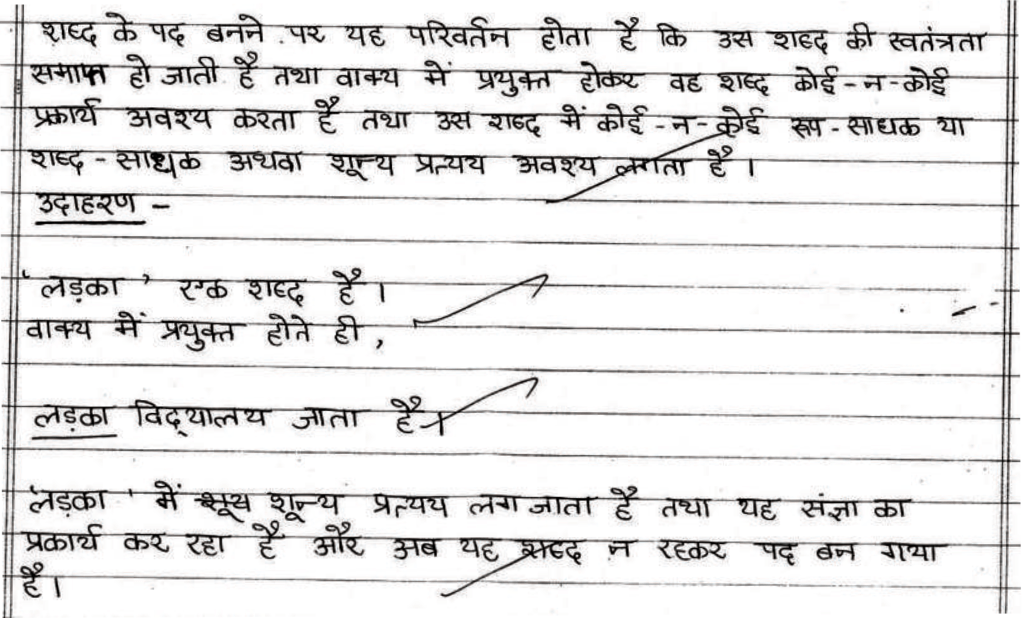 शब्द के पद बनने पर यह परिवर्तन होता है कि उस शब्द की स्वतंत्रता
समाप्त हो जाती है तथा वाक्य में प्रयुक्त होकर वह शब्द कोई-न-कोई
प्रकार्य अवश्य करता है तथा उस शब्द में कोई-न-कोई रूप-साधक या
शब्द-साधक अथवा शून्य प्रत्यय अवश्य लगता है।
उदाहरण -
'लड़का' एक शब्द है।
वाक्य में प्रयुक्त होते ही,
लड़का विद्यालय जाता है।
'लड़का' में शून्य प्रत्यय लग जाता है तथा यह संज्ञा का
प्रकार्य कर रहा है और अब यह शब्द न रहकर पद बन गया
है।